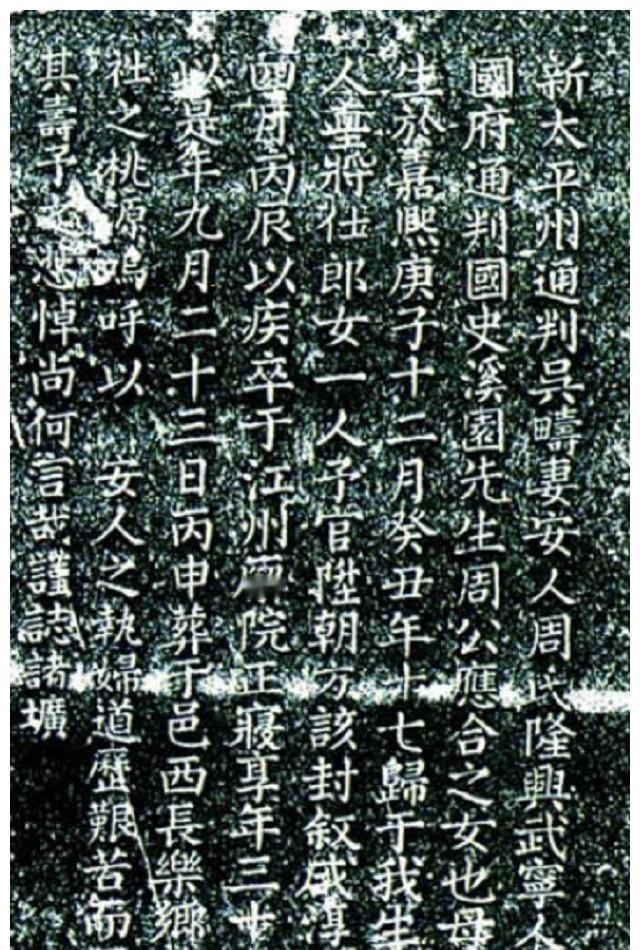 新太平州通判吳疇妻安人周氏隆興武寧人
國府通判國史溪園先生周公應合之女也母
生於嘉熙庚子十二月癸丑年十七歸于我生
人堂將仕郎女一人子官陞朝方該封叙咸淳
四月丙辰以疾卒于江州院正寢耳年三十
以是年九月二十三日丙申葬于邑西長樂鄉
社之桃源嗚呼以 安人之執婦道歷艱苦而
其壽子之悲悼尚何言哉謹誌諸壙